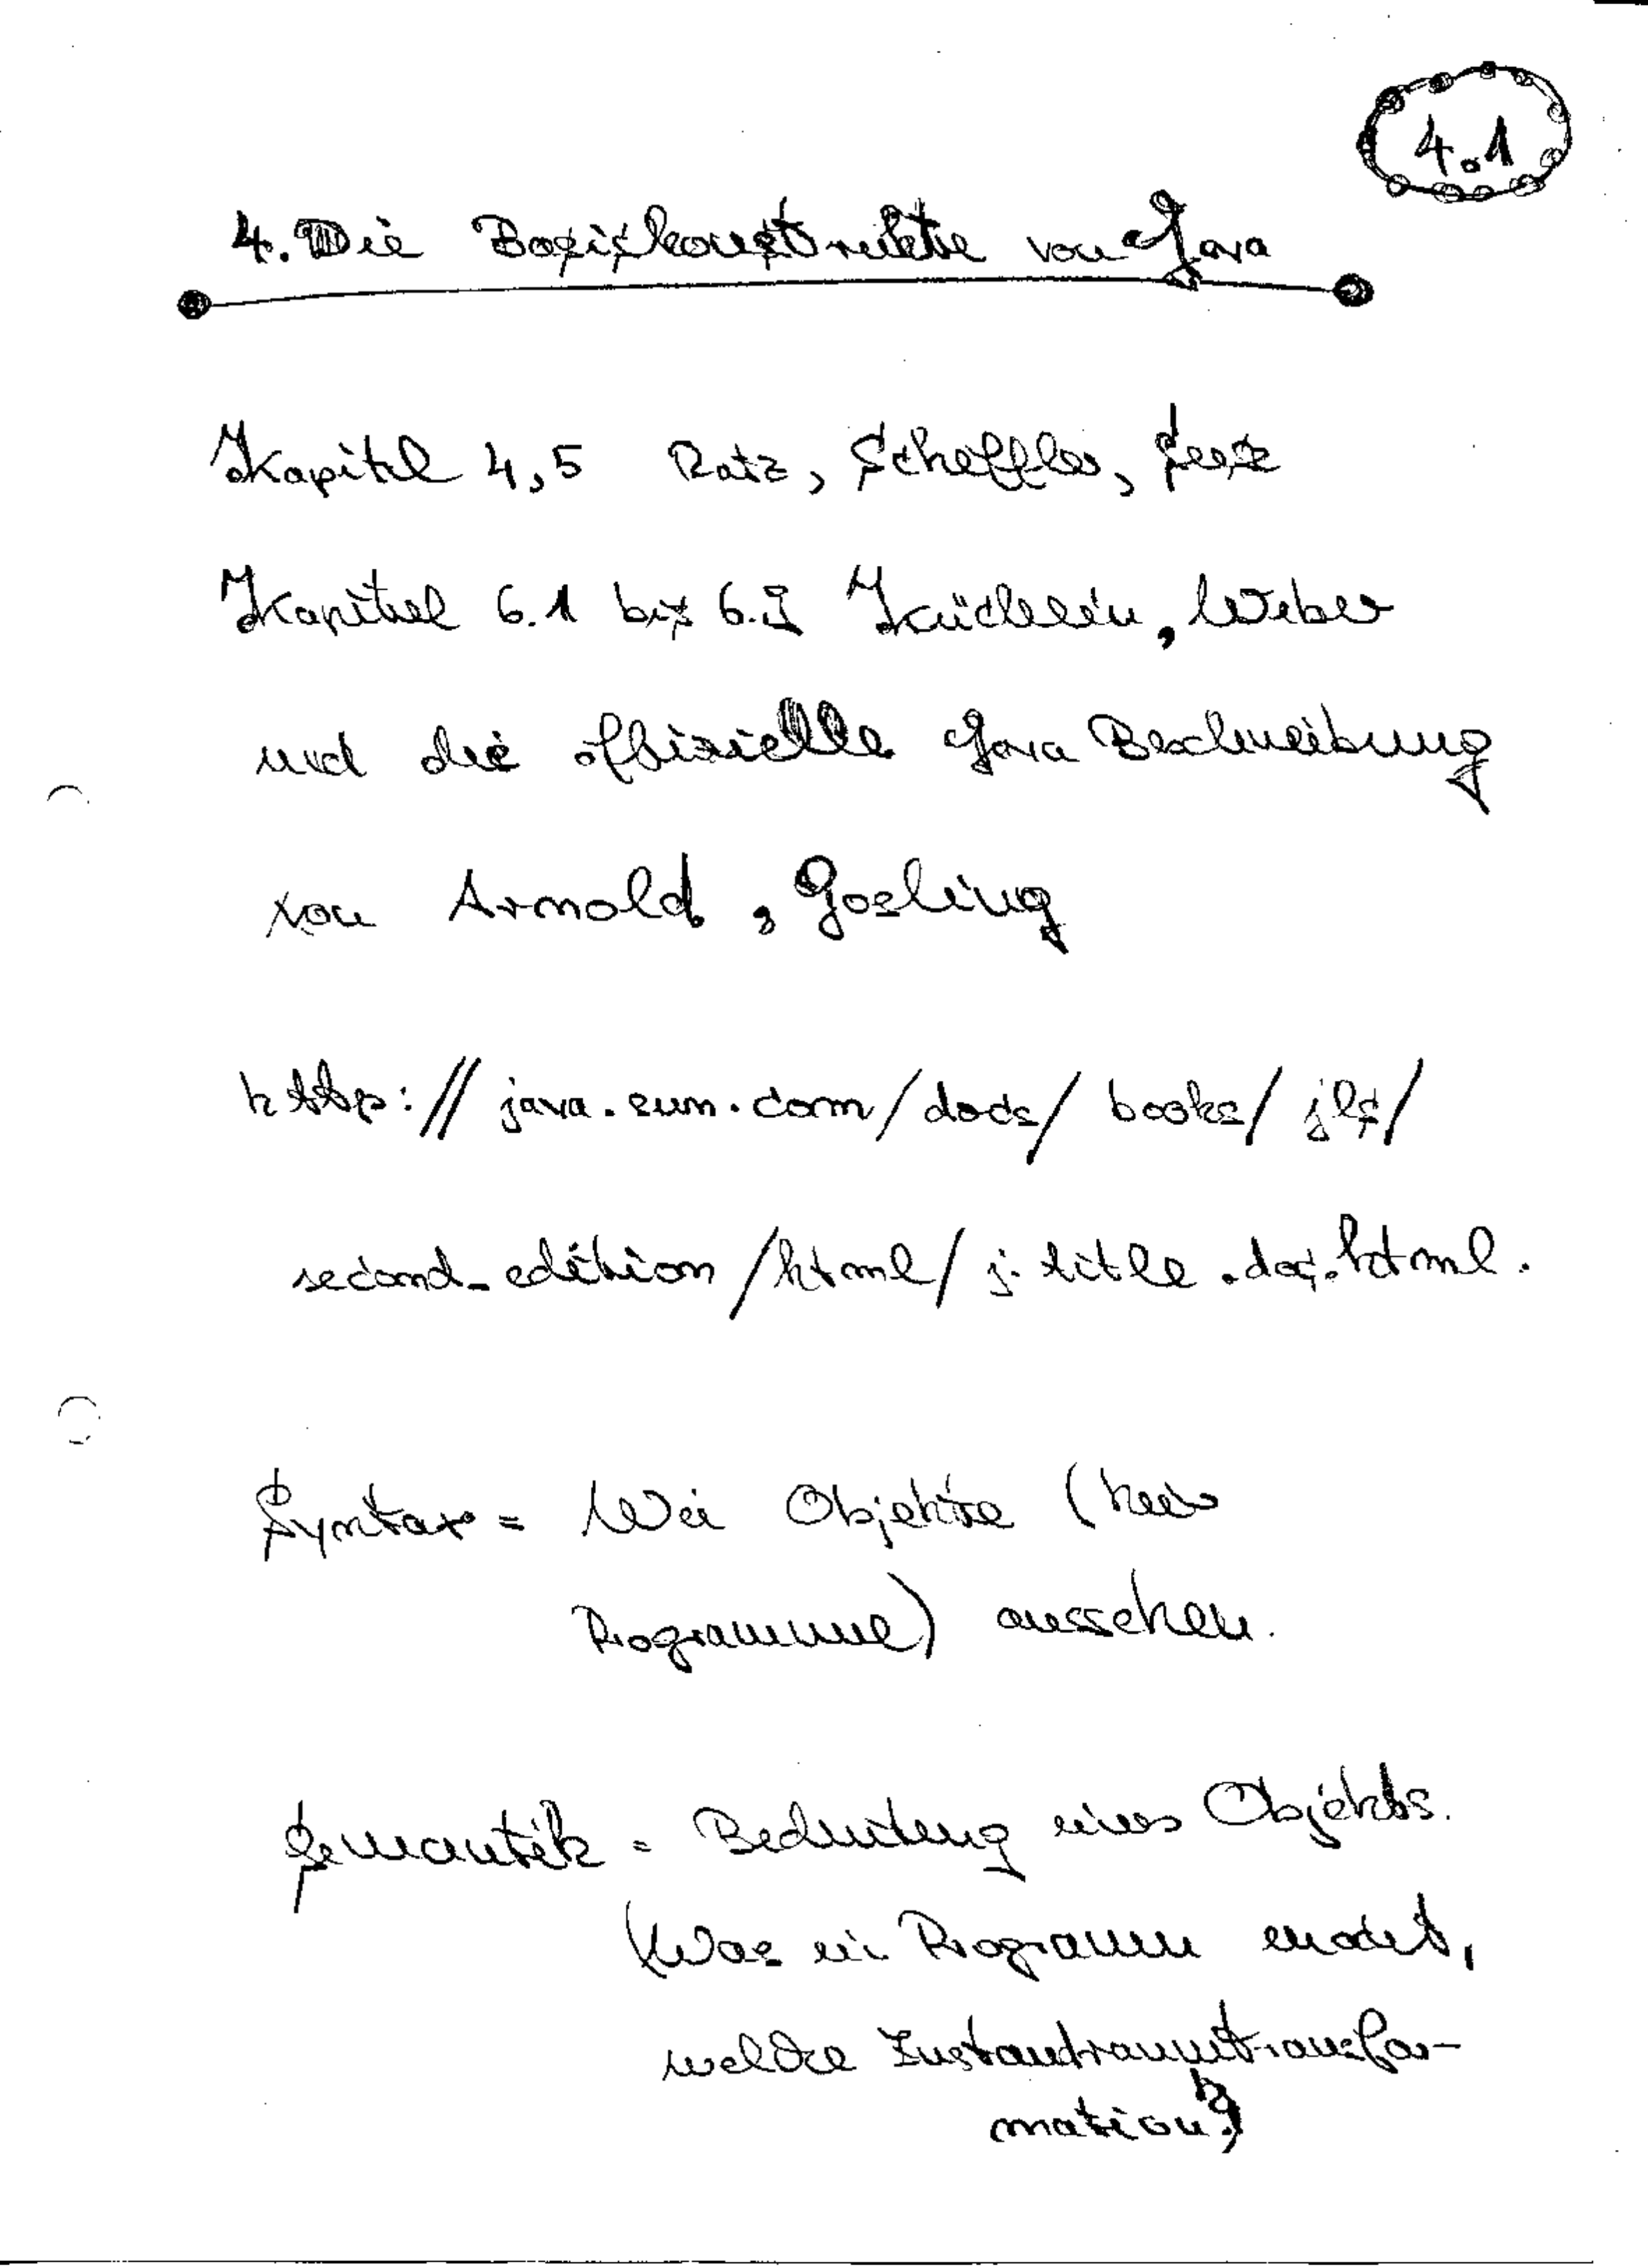 4.1
4. Die Basiskonstrukte von Java
Kapitel 4,5 Ratz, Scheffler, Seese
Kapitel 6.1 bis 6. Küchlein, Weber
und die offizielle Java Beschreibung
von Arnold, Gosling
http://java.sun.com/docs/books/jls/
second_edition/html/j.title.doc.html.
Syntax = Wie Objekte (hier
Programme) aussehen.
Semantik = Bedeutung eines Objekts.
(Was ein Programm macht,
welche Zustandsraumtransfor-
mation?)